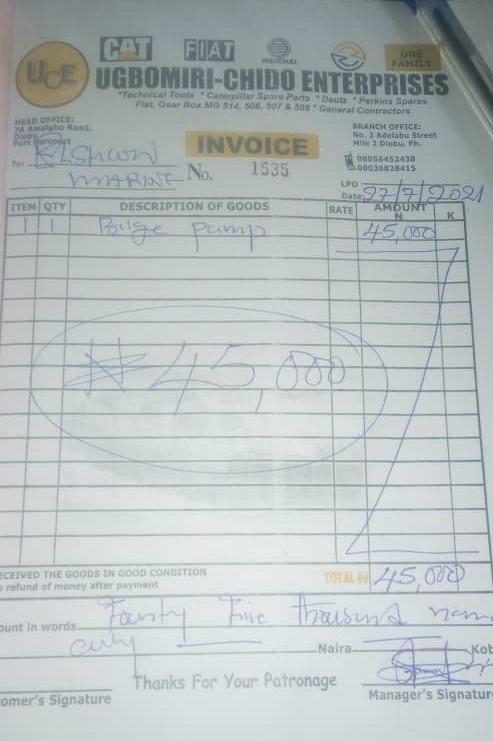 CAT FIAT WEICHAI ONE FAMILY
UCE
UGBOMIRI-CHIDO ENTERPRISES
*Technical Tools *Caterpillar Spare Parts *Deutz *Perkins Spares
Fiat, Gear Box MG 514, 506, 507 & 509 *General Contractors
HEAD OFFICE:
7A Amaigbo Road,
Diobu
Port Harcourt
BRANCH OFFICE:
No. 2 Adelabu Street
Mile 2 Diobu, Ph.
08056452438
08036828415
INVOICE
No. 1535
To:
MARINE
LPO
Date: 27/7/2021
ITEM QTY DESCRIPTION OF GOODS RATE AMOUNT
N K
1 1 Bilge pump 45,000
₦45,000
ECEIVED THE GOODS IN GOOD CONDITION
refund of money after payment
TOTAL ₦ 45,000
ount in words Fourty Five thousand
only
Naira Kob
Thanks For Your Patronage
omer's Signature
Manager's Signature